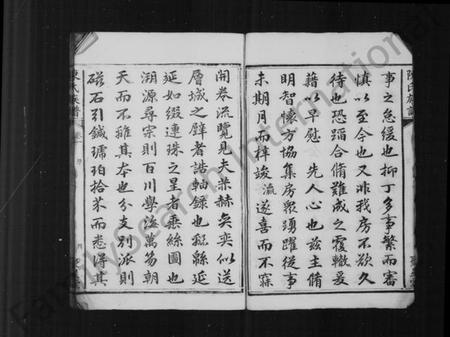 陳氏族譜
事之怠緩也抑丁多事繁而審
慎以至今也又非我房不欲久
待也恐蹈合脩難成之覆轍爰
藉以早慰 先人心也玆主脩
明智懷方協集房衆踴躍從事
未期月而梓竣流遂喜而不寐
開卷流覽見夫
層城之
延如綴連珠之星者垂絲圖也
溯源尋宗則百川學海萬笏朝
天而不雜其本也分支別派則
磁石引鍼琥珀拾芥而悉得其
陳氏族譜
FamilySearch International